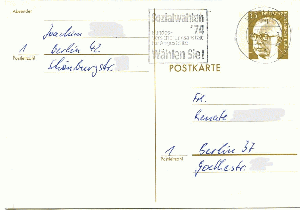 Absender
Joachim
1 Berlin 42
Postleitzahl
Schönburgstr.
Sozialwahlen
'74
Wählen Sie!
POSTKARTE
Fr.
Renate
1 Berlin 37
Postleitzahl
Goethestr.